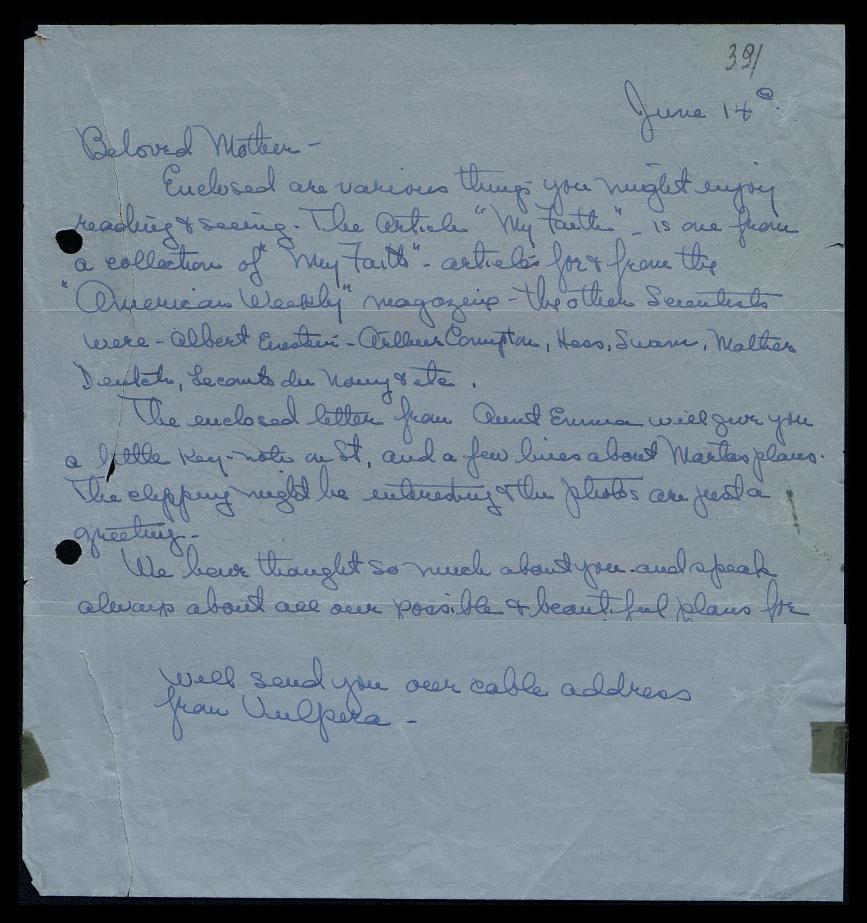 39/
June 14
Beloved Mother -
Enclosed are various things you might enjoy
reading & seeing. The Article "My Faith" - is one from
a collection of "My Faith" - articles for & from the
"American Weekly" magazine - the other Scientists
were - Albert Einstein - Arthur Compton, Hess, Swann, Mather
Deutch, Lecomte du Nouy & etc.
The enclosed letter from Aunt Emma will give you
a little key-note on St, and a few lines about Martas plans.
The clipping might be interesting & the photos are just a
greeting.
We have thought so much about you and speak
always about all our possible & beautiful plans for
Will send you our cable address
from Vulpera -